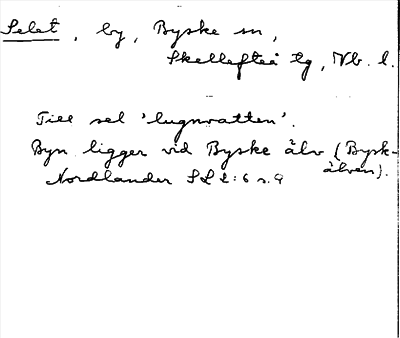 Selet, by, Byske sn,
Skellefteå tg, Vb. l.
Till sel 'lugnvatten'.
Byn ligger vid Byske älv (Bysk-
älven).
Nordlander SL 2:6 s. 9